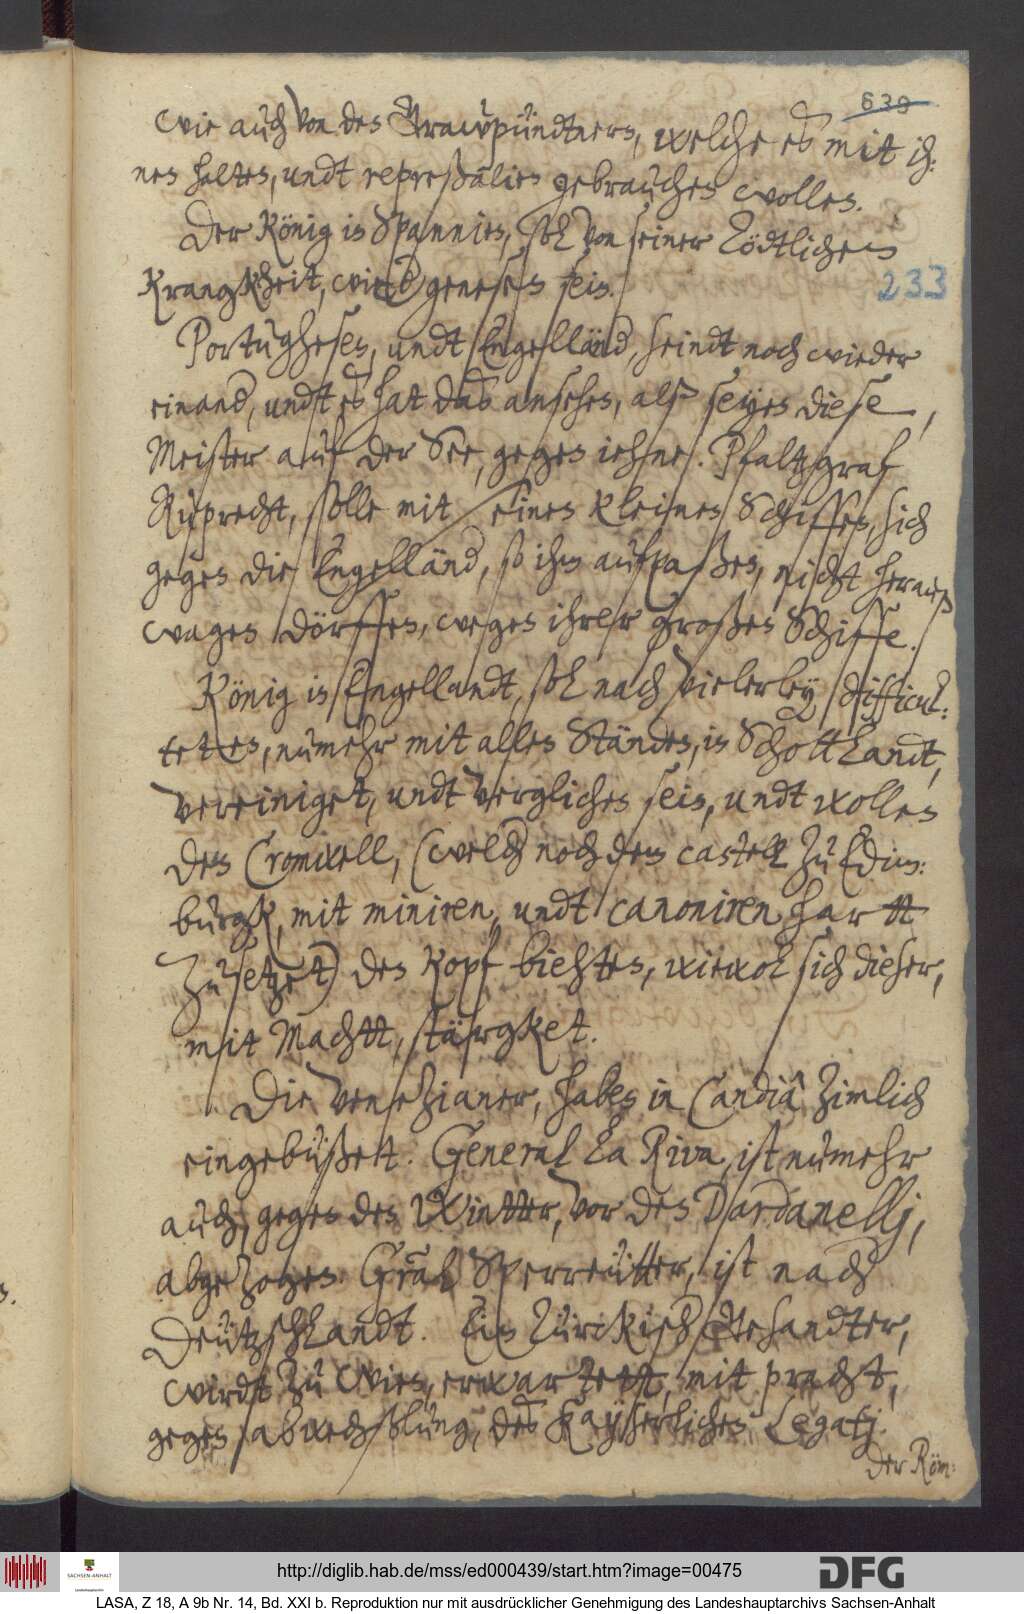 639
wie auch von den Grawpündtnern, welche es mit ih:
nen halten, undt repreßalien gebrauchen wollen.
Der König in Spannien, sol von seiner Tödtlichen
Krangkheit, wied(er) genesen sein.
233
Portughesen, undt Engelländ(er), seindt noch wieder
einand(er), undt es hat das ansehen, alß seyen diese,
Meister auf der See, gegen iehne. Pfaltzgraf
Ruprecht, solle mit seinen kleinen Schiffen, sich
gegen die Engelländ(er), so ihm aufpaßen, nicht herauß
wagen dörffen, wegen ihrer großen Schiffe.
König in Engellandt, sol nach vielerley difficul:
teten, numehr mit allen Ständen, in Schottlandt,
vereiniget, undt verglichen sein, undt wollen
dem Cromwell, (welch(er) noch dem castell zu Edim:
burgk, mit miniren, undt canoniren hartt
zusetzet) den Kopf biehten, wiewol sich dieser,
mit Machtt, stärgket.
Die Venezianer, haben in Candia zimlich
eingebüßett. General La Riva, ist numehr
auch, gegen den Wintter, vor den Dardanellj,
abgezogen. Gral Sperreütter, ist nach
Deützschlandt. Ein Türckisch(er) Gesandter,
wirdt zu Wien, erwartett, mit pracht,
gegen abwechßlung, des Kayserlichen Legatj.
Der Röm:
http://diglib.hab.de/mss/ed000439/start.htm?image=00475
DFG
SACHSEN-ANHALT
Landeshauptarchiv
LASA, Z 18, A 9b Nr. 14, Bd. XXI b. Reproduktion nur mit ausdrücklicher Genehmigung des Landeshauptarchivs Sachsen-Anhalt